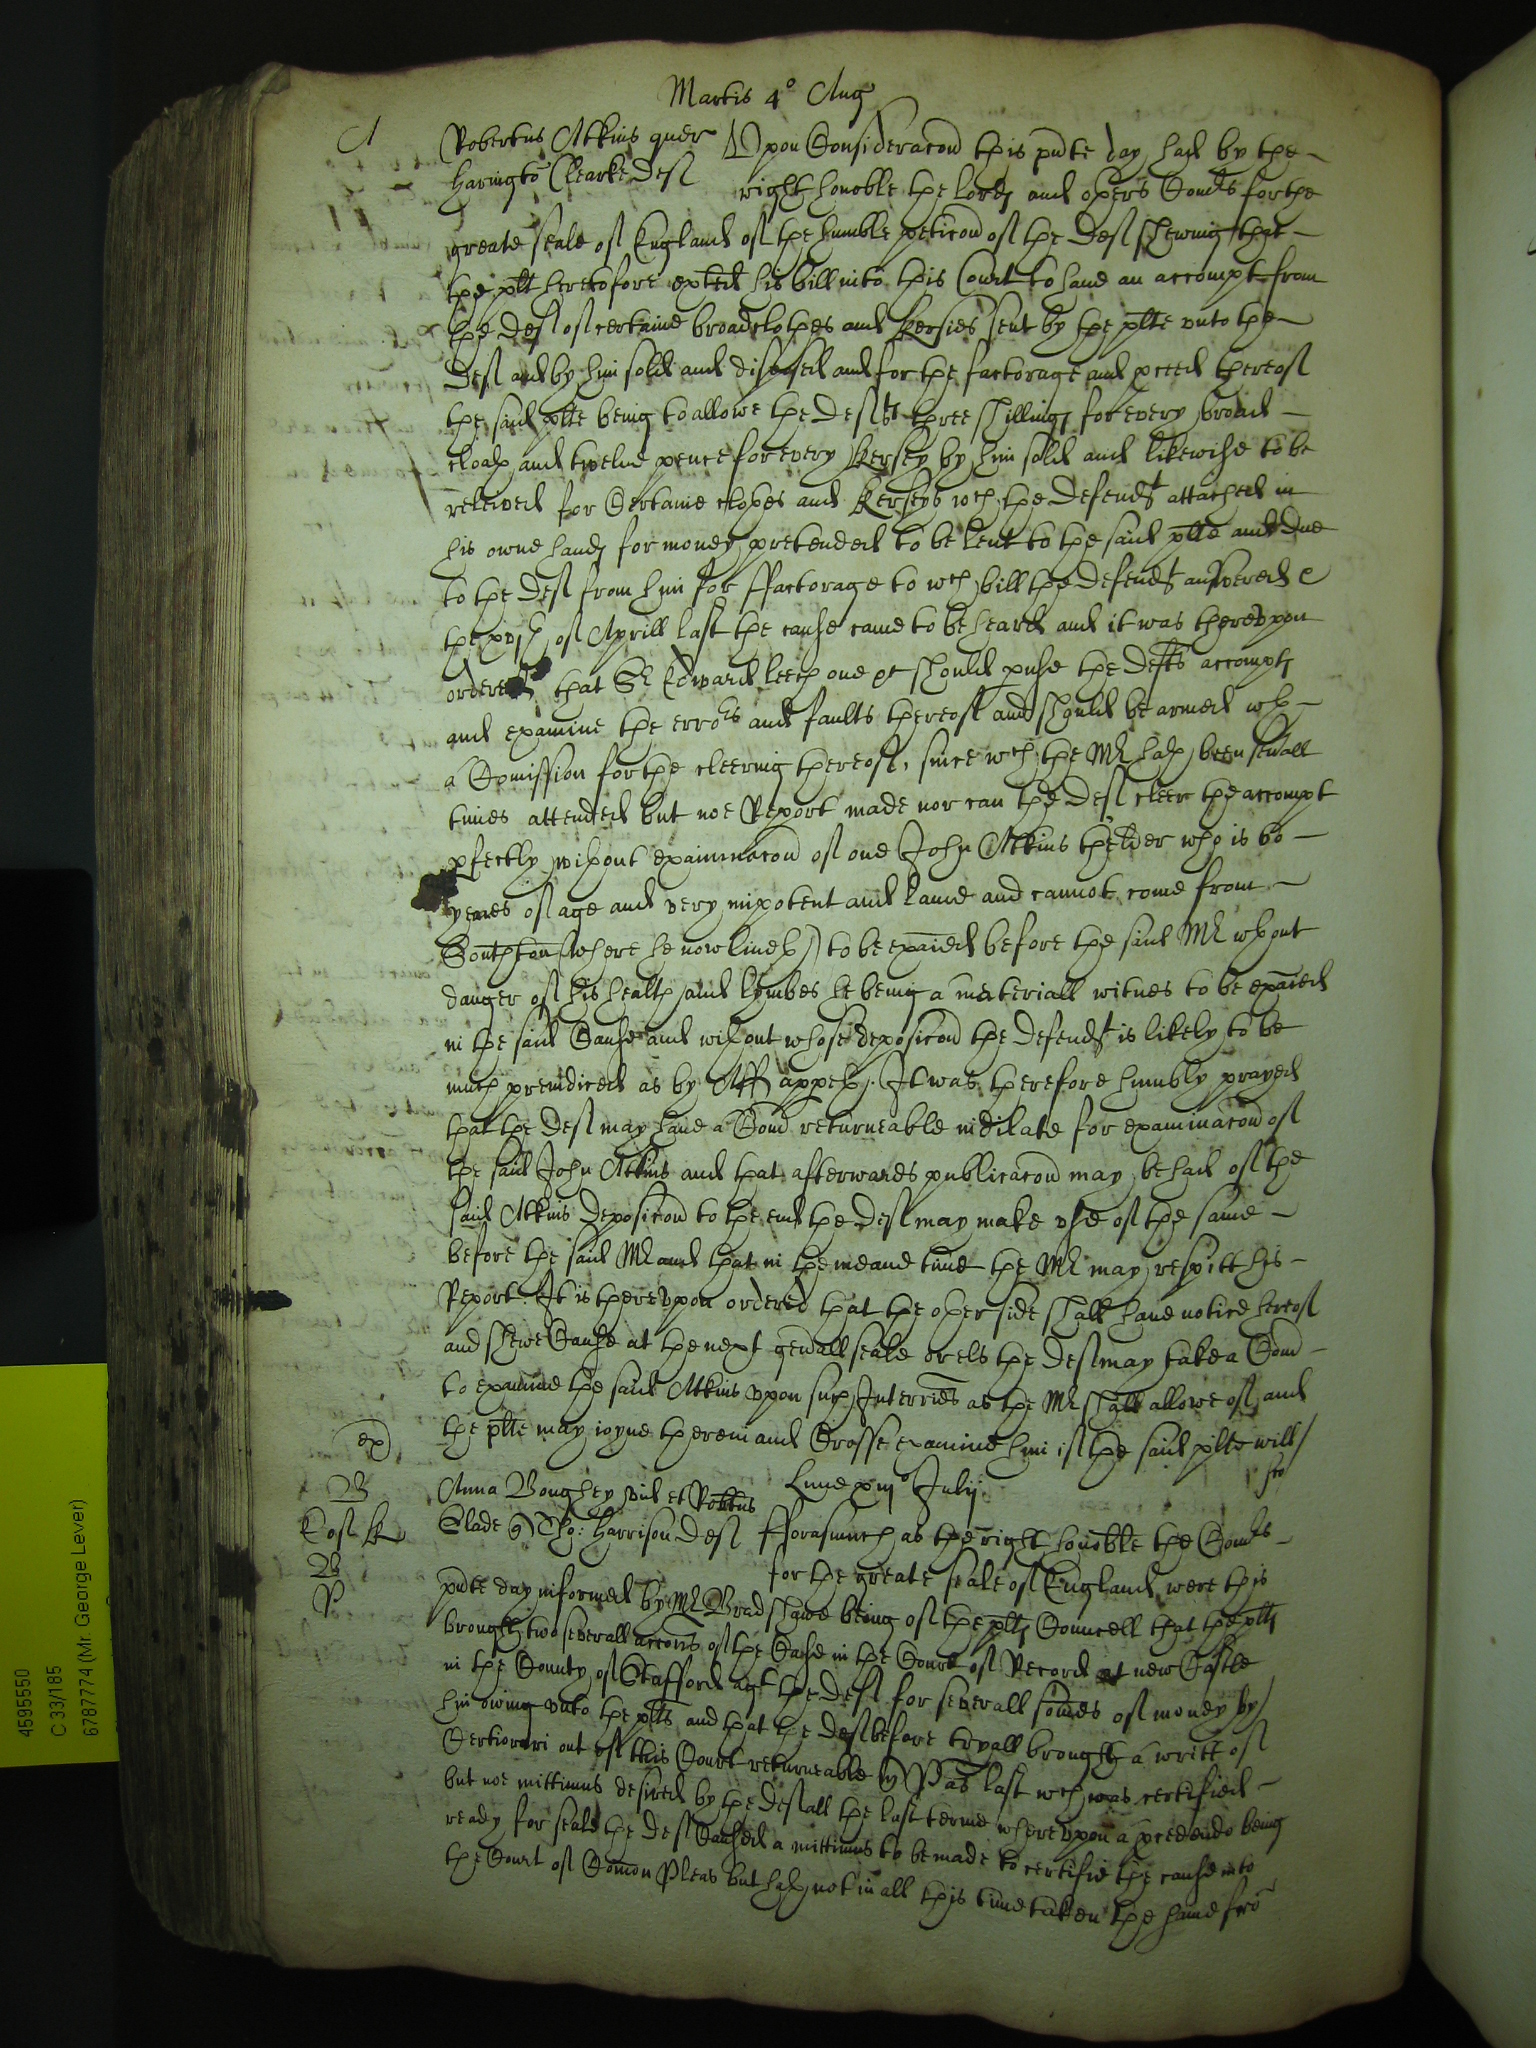 Martis 4° Aug
A
Robertus Atkins quer
Haringtō Clearke def
Upon Consideracon this pnte day had by the
right honoble the lords and others Comrs for the
greate seale of England of the humble peticon of the def shewing that
the plt heretofore exhted his bill into this Court to have an accompt from
the def of certaine broad clothes and kersies sent by the plte unto the
def and by him sold and disposed and for the factorage and pceed thereof
the said plte being to allowe the deft three shillings for every broad
cloath and twelve pence for every kersey by him sold and likewise to be
releived for Certaine clothes and kerseys wch the defendt attached in
his owne hands for money pretended to be lent to the said plte and due
to the def from him for ffactorage to wch bill the defendt answered &
the xvth of Aprill last the cause came to be heard and it was thereupon
ordered that Sr Edward leech one &c should puse the defts accompts
and examine the errors and faults thereof and should be armed wth
a Comission for the cleering thereof, since wch the Mr hath been sevall
times attended but noe Report made nor can the def cleer the accompt
pfectly without examinacon of one John Atkins thelder who is 60
yeares of age and very impotent and lame and cannot come from
Southton (where he now liveth) to be exaied before the said Mr wthout
danger of his health and lymbes he being a materiall witnes to be exaied
in the said Cause and without whose deposicon the defendt is likely to be
much preiudiced as by Aff appeth. It was therefore humbly prayed
that the def may have a Com returneable indilate for examinacon of
the said John Atkins and that afterwards publicacon may be had of the
said Atkins deposicon to the end the def may make use of the same
before the said Mr and that in the meane time the Mr may respitt his
Report. It is thereupon ordered that the other side shall have notice hereof
and shewe Cause at the next genall seale or els the def may take a Com
to examine the said Atkins upon such Interries as the Mr shall allowe of and
the plte may ioyne therein and Crosse examine him if the said plte will
ex
B
Anna Boughey vid et Robtus
Slade & Tho: Harrison def
Lune xiij° Julij
fforasmuch as the right honoble the Comrs
for the greate seale of England were this
B
P
pnte day informed by Mr Bradshawe being of the plts Councell that the plts
brought two severall accons of the Case in the Court of Record at new Castle
in the County of Stafford agt the def for severall somes of money by
him owing unto the plts and that the def before tryall brought a writt of
Certiorari out of this Court returneable Pas last wch was certified
but noe mittimus desired by the def all the last terme whereupon a pcedendo being
ready for seale the def Caused a mittimus to be made to certifie the cause into
the Court of Comon Pleas but hath not in all this time taken the same frō
4595550
C 33/185
6787774 (Mr. George Lever)